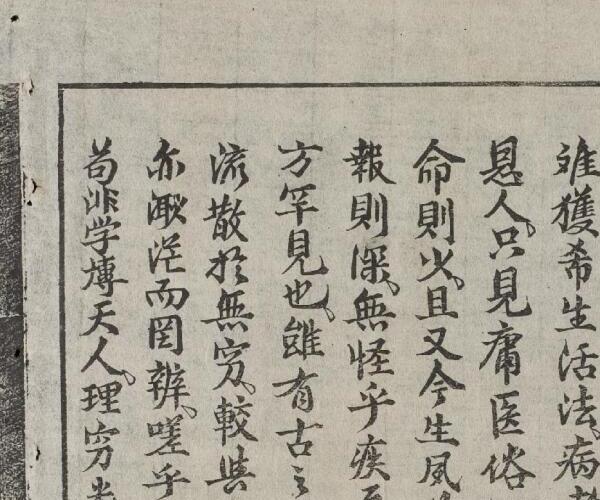 难獲希生活法病
息人只見庸医俗
命則火且又今生風
報則深無怪乎疾
方罕見也雖有古之
流散於無穷較其
亦渺茫而罔辨嗟乎
苟非学博天人理穷